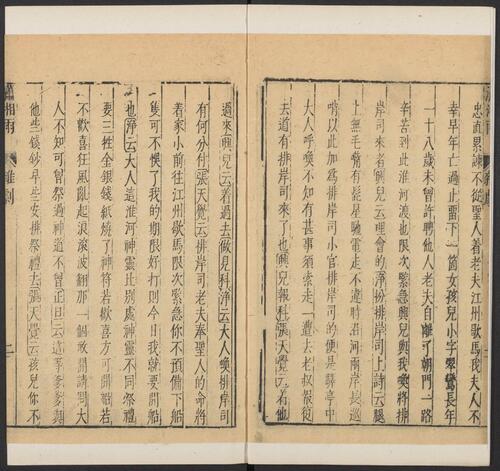 忠直累諫不從聖人着老夫江州歇馬我夫人不
幸早年亡過止留下一箇女孩兒小字翠鸞長年
一十八歲未曾許聘他人老夫自離了朝門一路
辛苦到此淮河渡也限次緊急興兒與我喚將排
岸司來者興兒云理會的淨扮排岸司上詩云腿
上無毛嘴有髭星馳電走不違時沿河兩岸長巡
哨以此加為排岸司小官排岸司的便是驛亭中
大人呼喚不知有甚事須索走一遭去老叔報復
去道有排岸司來了也興兒報科張天覺云着他
過來興兒云着過去做見科淨云大人喚排岸司
有何分付張天覺云排岸司老夫奉聖人的命將
着家小前往江州歇馬限次緊急你不預備下船
隻可不悞了我的期限好打則今日我就要開船
也淨云大人這淮河神靈比別處神靈不同祭禮
要三牲金銀錢紙燒了神符若歡喜方可開船若
不歡喜狂風亂起浪滾波翻那一個敢開請問大
人不知可曾祭過神道不曾正旦云這等爹爹與
他些錢鈔早些安排祭禮去張天覺云孩兒你不
瀟湘雨
雜劇
二